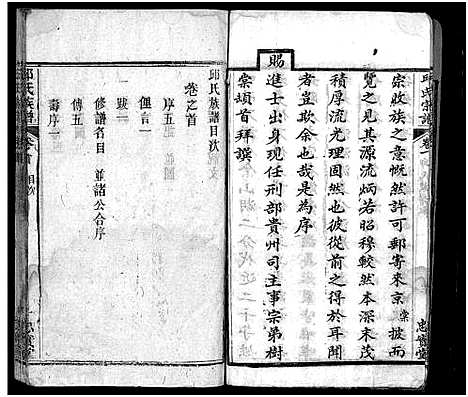 邱氏宗譜
宗收族之意慨然許可郵寄來京棠披而
覽之見其源流炳若昭穆較然本深末茂
積厚流光理固然也彼從前之得於耳聞
者豈欺余也哉是爲序
賜進士出身現任刑部貴州司主事宗弟樹
棠頓首拜譔
邱氏族譜目次
卷之首
序五
俚言一
跋一
修譜名目 並諸公合序
傳五
壽序一
邱氏族譜 卷首 目次